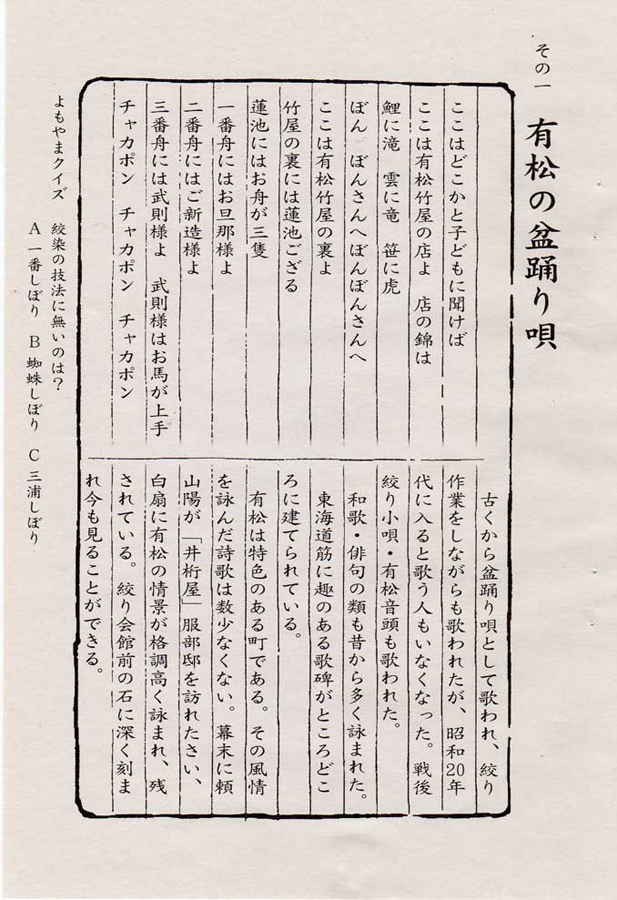 その一　有松の盆踊り唄
ここはどこかと子どもに聞けば
ここは有松竹屋の店よ　店の錦は
鯉に滝　雲に竜　笹に虎
ぼん　ぼんさんへぼんぼんさんへ
ここは有松竹屋の裏よ
竹屋の裏には蓮池ござる
蓮池にはお舟が三隻
一番舟にはお旦那様よ
二番舟にはご新造様よ
三番舟には武則様よ　武則様はお馬が上手
チャカポン　チャカポン　チャカポン
古くから盆踊り唄として歌われ、絞り
作業をしながらも歌われたが、昭和20年
代に入ると歌う人もいなくなった。戦後
絞り小唄・有松音頭も歌われた。
和歌・俳句の類も昔から多く詠まれた。
東海道筋に趣のある歌碑がところどこ
ろに建てられている。
有松は特色のある町である。その風情
を詠んだ詩歌は数少なくない。幕末に頼
山陽が「井桁屋」服部邸を訪れたさい、
白扇に有松の情景が格調高く詠まれ、残
されている。絞り会館前の石に深く刻ま
れ今も見ることができる。
よもやまクイズ　絞染の技法に無いのは？
A 一番しぼり　B 蜘蛛しぼり　C 三浦しぼり